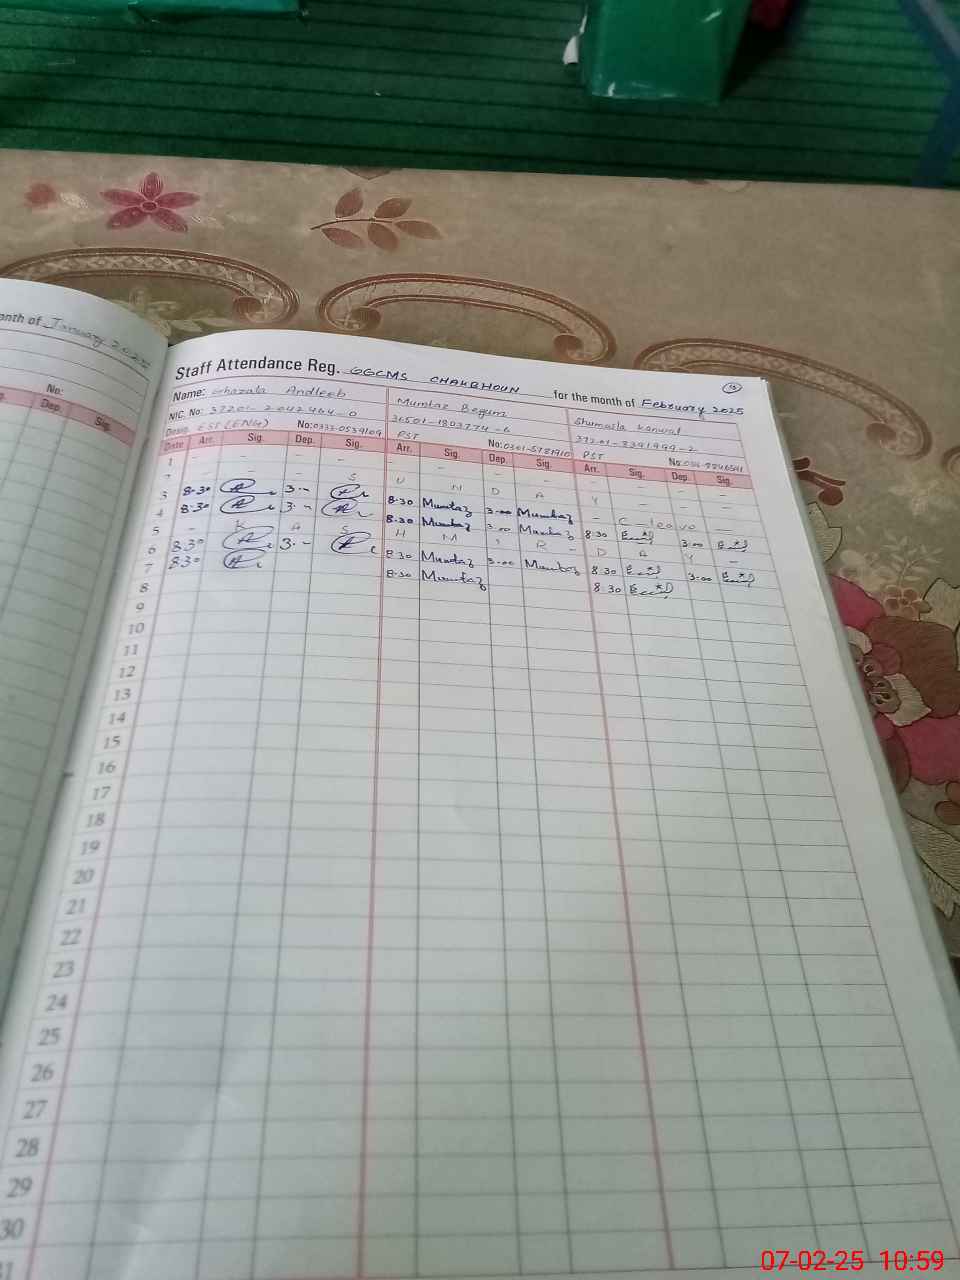 onth of January 202
No:
Dep.
Sig.
Staff Attendance Reg. GGCMS CHAKBHOUN for the month of February 2025
Name: Ghazala Andleeb Mumtaz Begum Shumaila Kanwal
NIC. No: 37201-2042464-0 36501-1803774-6 37201-8391999-2
Desig. EST (ENG) No: 0333-0539109 PST No: 0301-5781910 PST No:
Date Arr. Sig. Dep. Sig. Arr. Sig. Dep. Sig. Arr. Sig. Dep. Sig.
1 - - - - - - - - - - - -
2 - - - S U N D A Y - - -
3 8:30 3:- 8:30 Mumtaz 3:00 Mumtaz - C - leave -
4 8:30 3:- 8:30 Mumtaz 3:00 Mumtaz 8:30 3:00
5 - K A S H M I R - D A Y -
6 8:30 3:- 8:30 Mumtaz 3:00 Mumtaz 8:30 3:00
7 8:30 8:30 Mumtaz 8:30
8
9
10
11
12
13
14
15
16
17
18
19
20
21
22
23
24
25
26
27
28
29
30
31
07-02-25 10:59